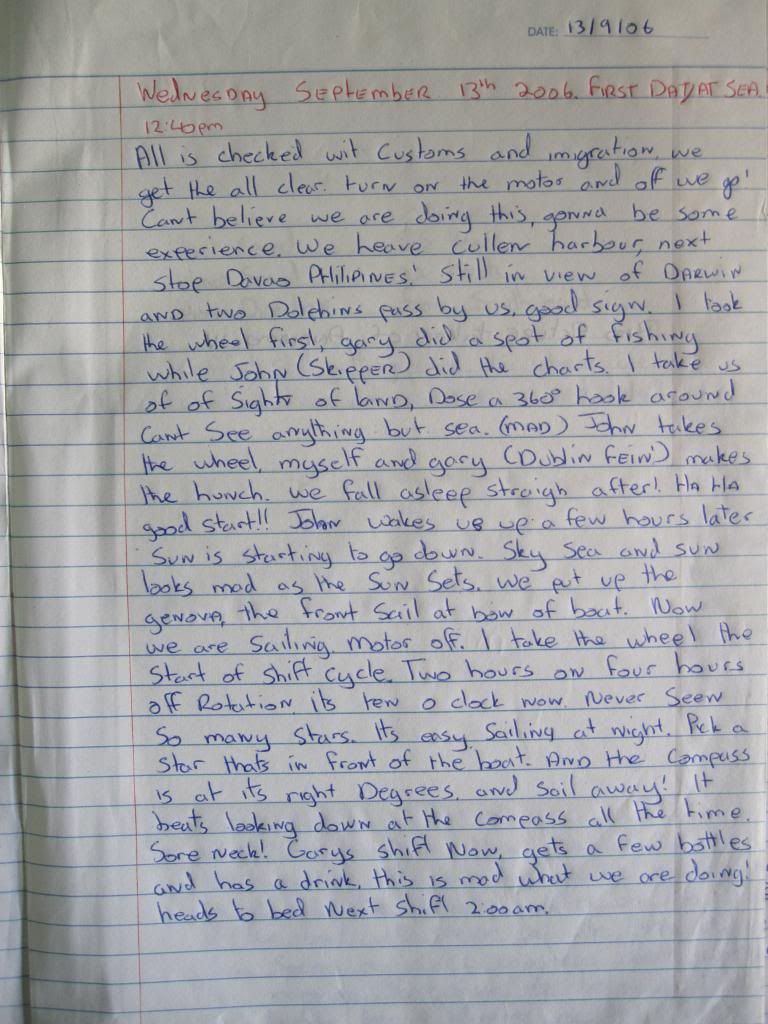 DATE: 13/9/06
Wednesday September 13th 2006. First Day At Sea.
12:40pm
All is checked wit Customs and imigration, we
get the all clear. turn on the motor and off we go!
Cant believe we are doing this, gonna be some
experience. We leave cullen harbour, next
stop Davao Philipines! Still in view of Darwin
and two Dolphins pass by us, good sign. I took
the wheel first, gary did a spot of fishing
while John (Skipper) did the charts. I take us
of of Sight of land, Dose a 360° look around
Cant See anything but sea. (mad) John takes
the wheel, myself and gary (Dublin Fein) makes
the lunch. we fall asleep straigh after! HA HA
good start!! John wakes us up a few hours later
Sun is starting to go down. Sky Sea and sun
looks mad as the Sun Sets. we put up the
genova, the front Sail at bow of boat. Now
we are Sailing. motor off. I take the wheel the
Start of shift cycle. Two hours on four hours
off Rotation. its ten o clock now. Never Seen
So many stars. Its easy Sailing at night. Pick a
Star thats in front of the boat. And the Compass
is at its right Degrees. and Sail away! It
beats looking down at the Compass all the time.
Sore neck! Garys shift Now, gets a few bottles
and has a drink, this is mad what we are doing!
heads to bed Next Shift 2:00am.